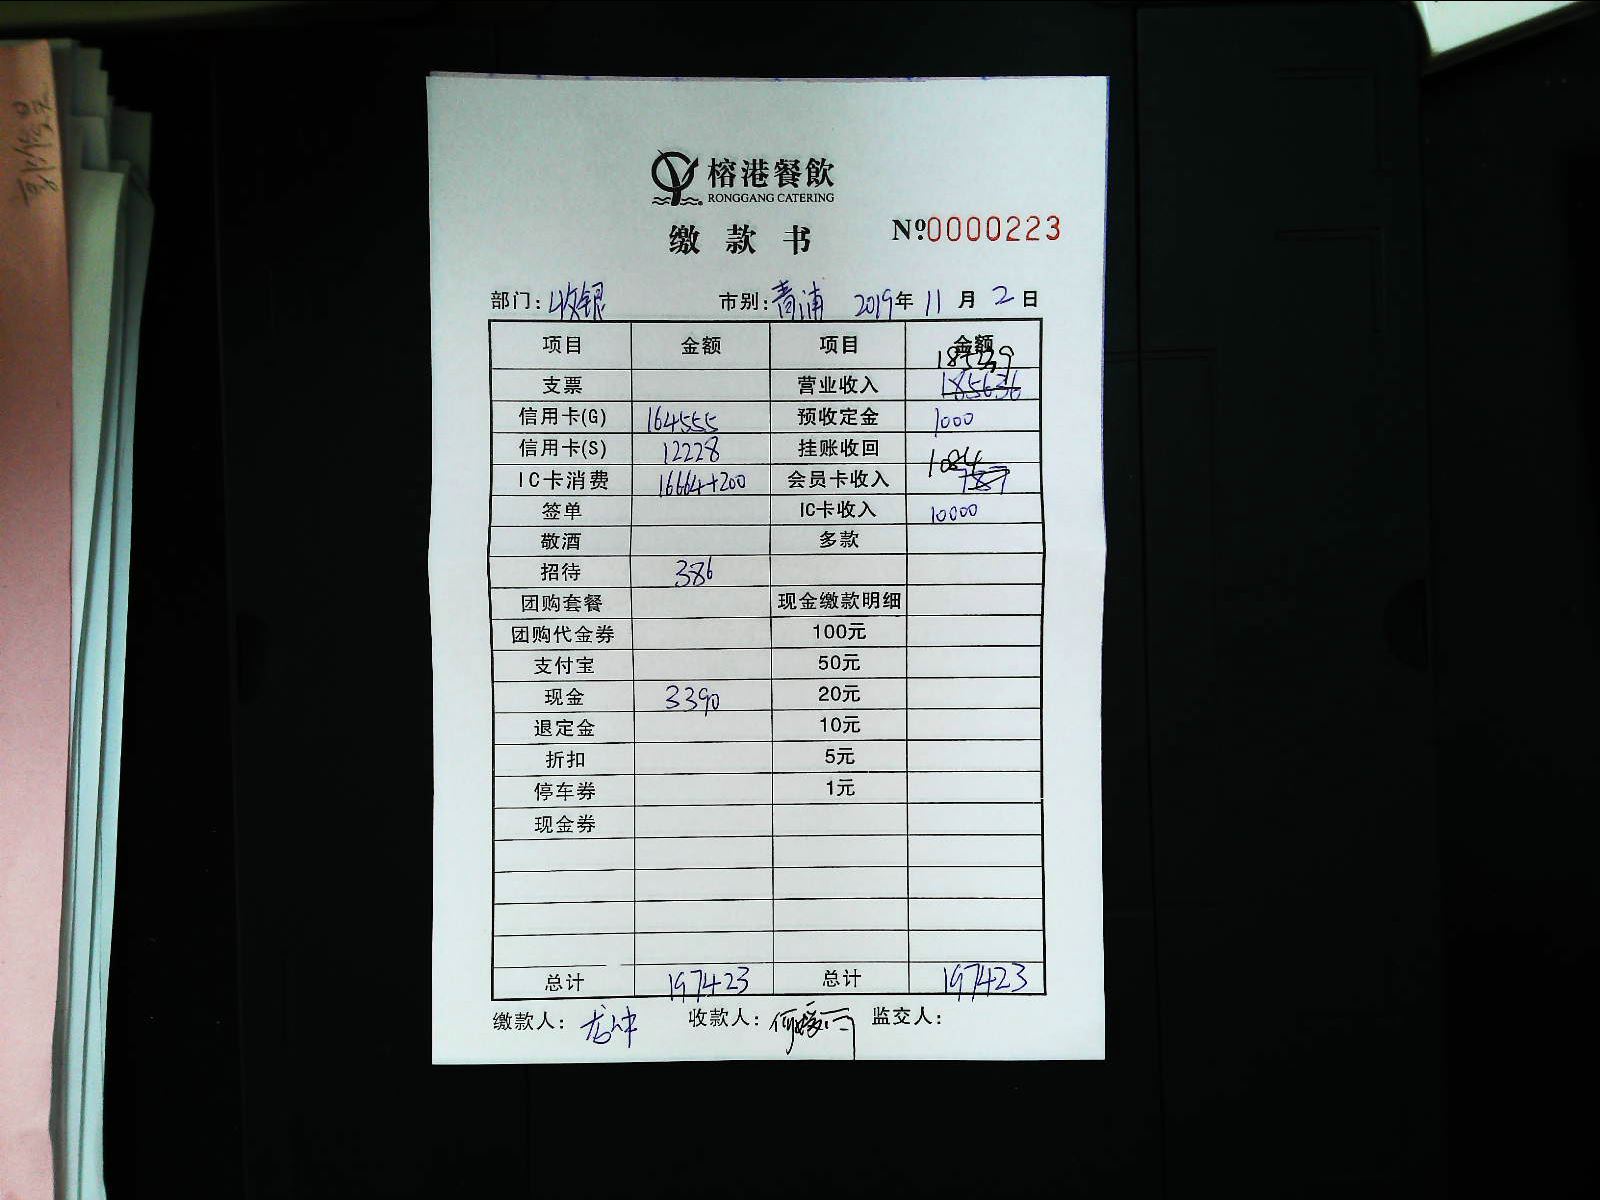 榕港餐飲
RONGGANG CATERING
缴款书 Nº0000223
部门:收银 市别:青浦 2019年11月2日
项目 金额 项目 金额
185339
支票 营业收入 185636
信用卡(G) 164555 预收定金 1000
信用卡(S) 12228 挂账收回
1084
IC卡消费 16664+200 会员卡收入 787
签单 IC卡收入 10000
敬酒 多款
招待 386
团购套餐 现金缴款明细
团购代金券 100元
支付宝 50元
现金 3390 20元
退定金 10元
折扣 5元
停车券 1元
现金券
总计 197423 总计 197423
缴款人: 收款人: 监交人: